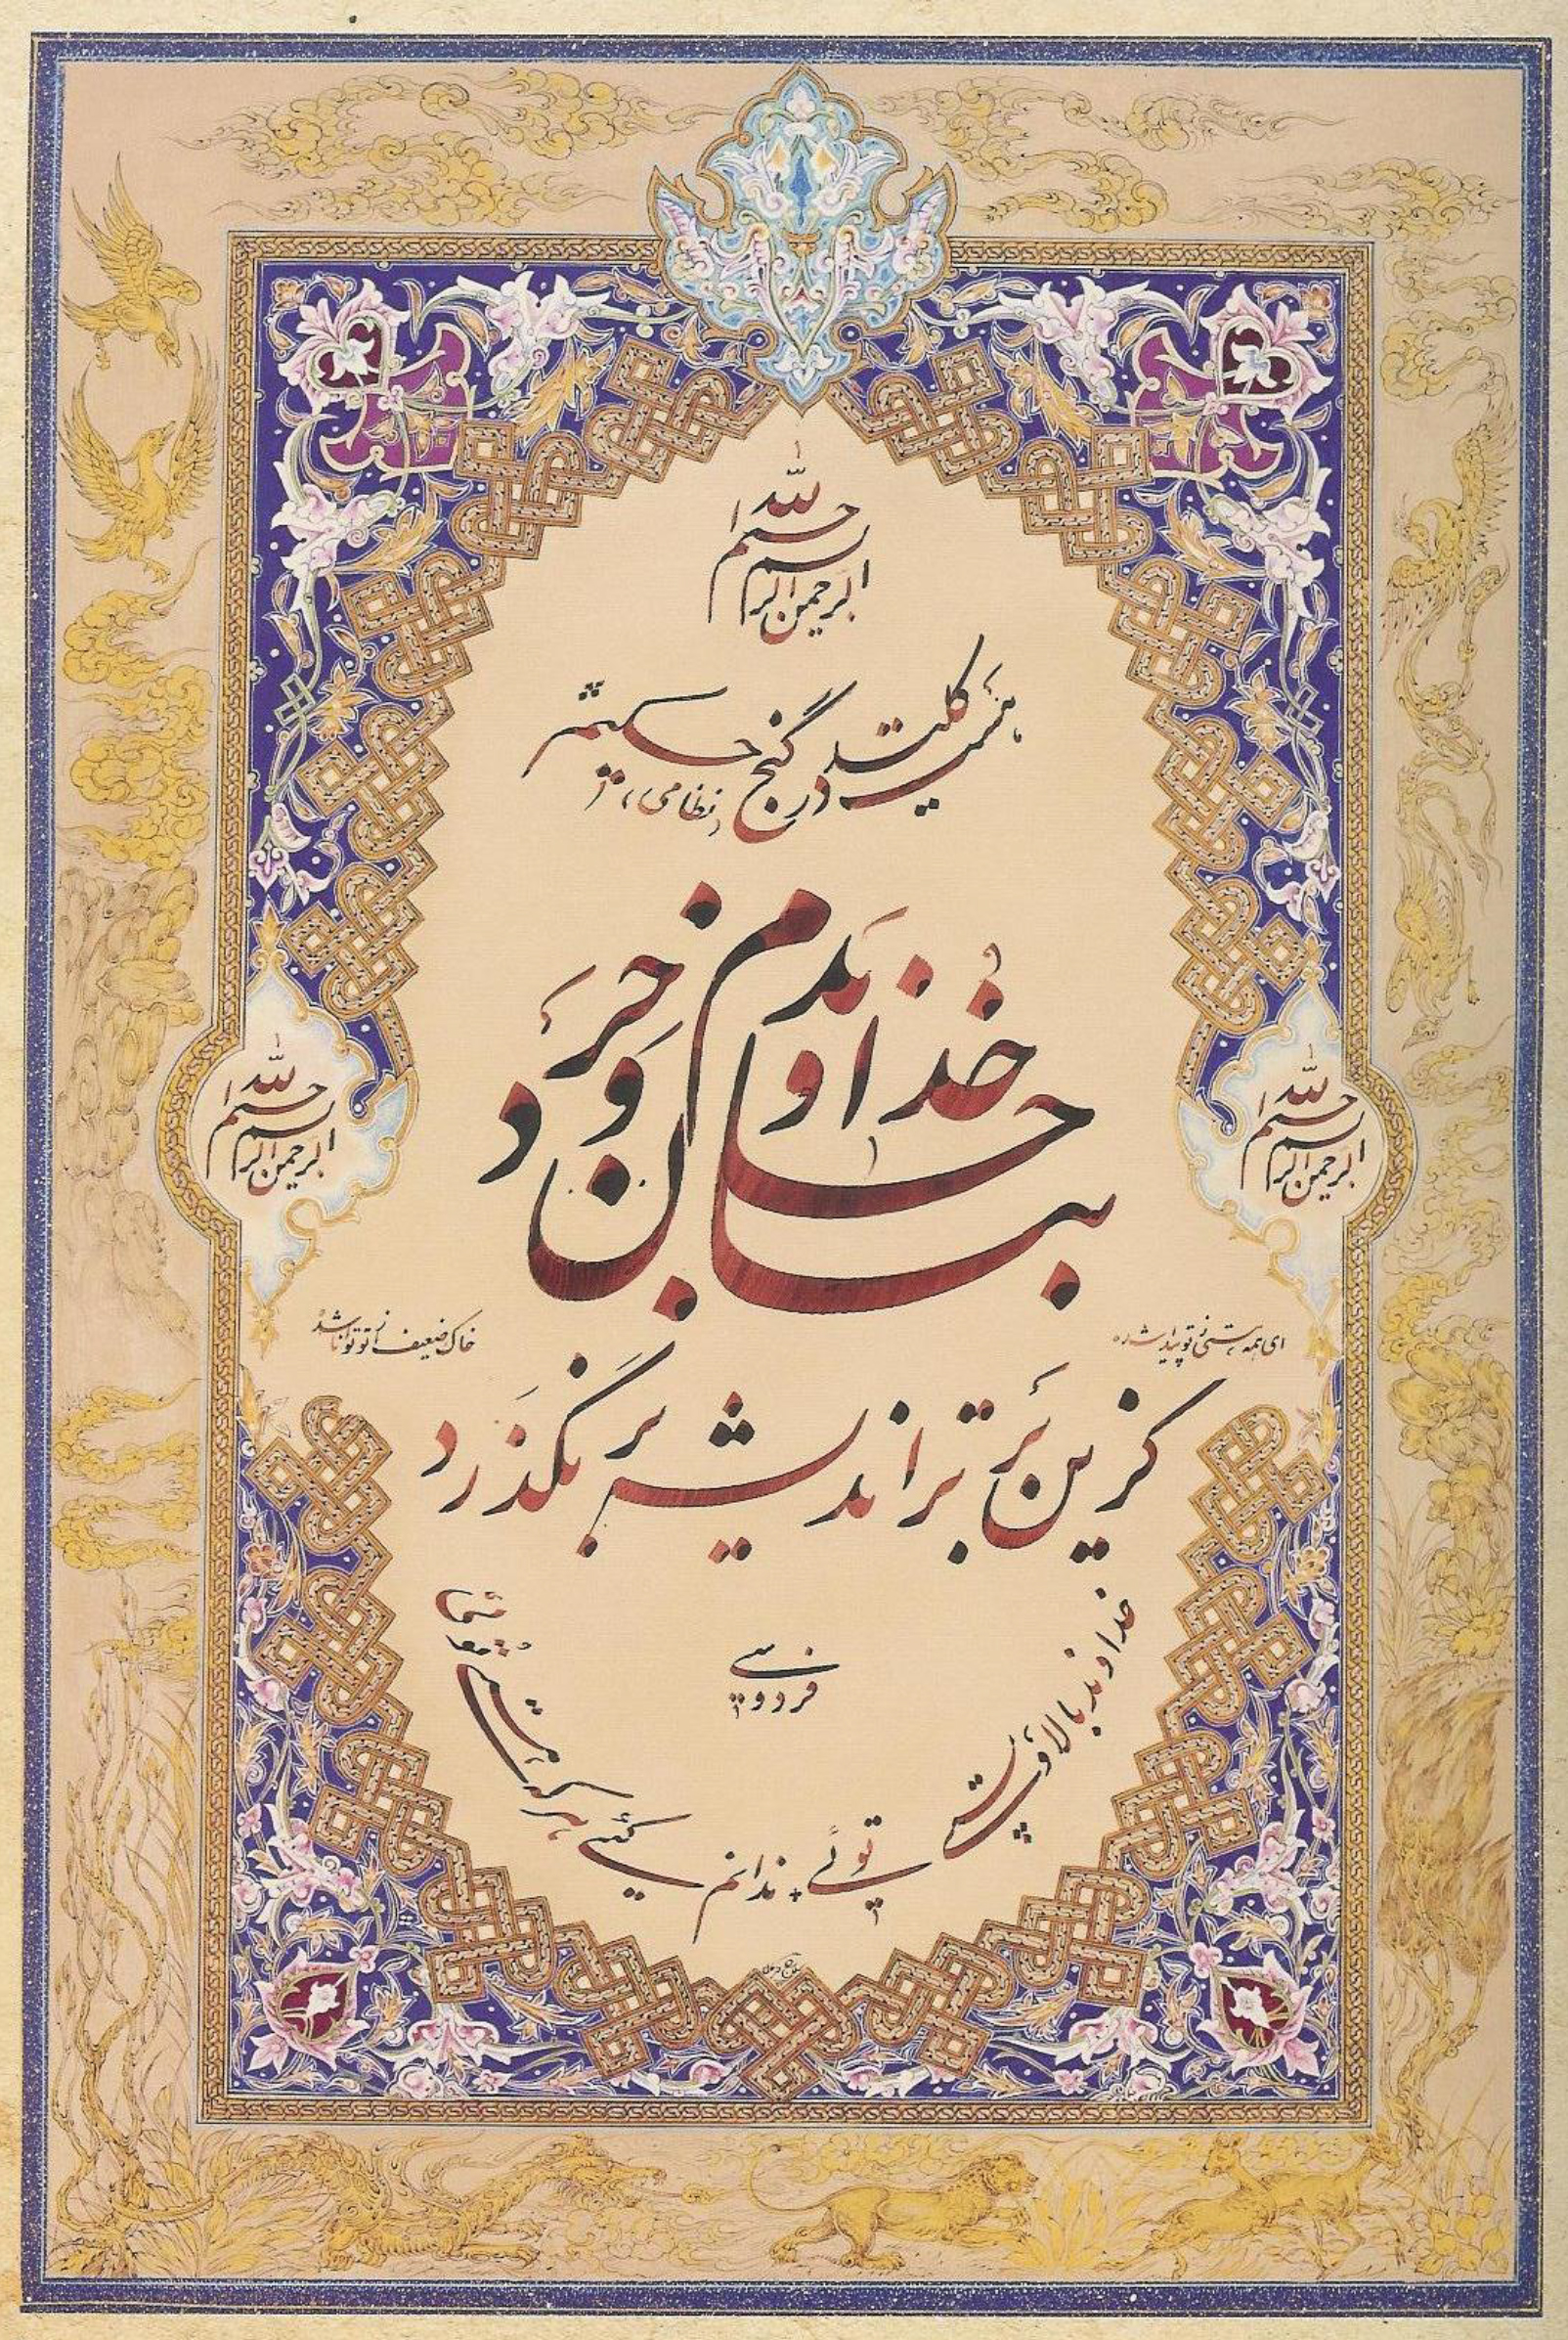 بسم الله الرحمن الرحیم
هست کلید در گنج حکیم
نظامی
بنام خداوند جان و خرد
بسم الله الرحمن الرحیم
بسم الله الرحمن الرحیم
ای همه هستی ز تو پیدا شده
خاک ضعیف از تو توانا شده
کزین برتر اندیشه برنگذرد
فردوسی
خداوند بالا و پستی توئی
ندانم کئی هر که هستی توئی